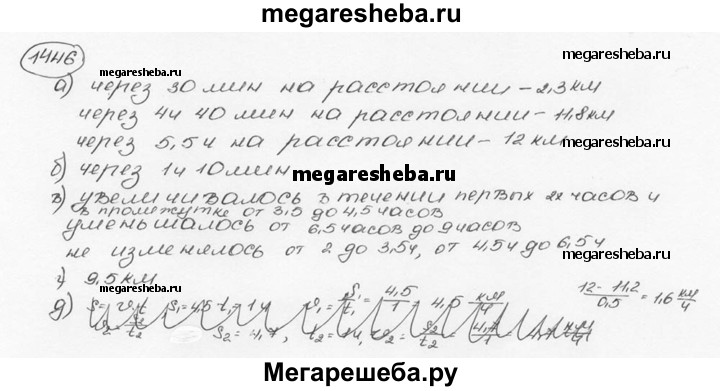 megaresheba.ru
1446
megaresheba.ru
megaresheba.ru
а) через 30 мин на расстоянии – 2,3 км
через 4ч 40 мин на расстоянии – 11,8 км
через 5,5ч на расстоянии – 12 км
б) через 1ч 10мин
megaresheba.ru
megaresheba.ru
в) увеличивалось в течении первых 2х часов и
в промежутке от 3,5 до 4,5 часов
уменьшалось от 6,5 часов до 9 часов
не изменялось от 2 до 3,5ч, от 4,5ч до 6,5ч
г) 9,5 км
д) S = v₁t S₁ = 4,5 t₁ = 1ч v₁ = S₁/t₁ = 4,5/1 = 4,5 км/ч (12 - 11,2)/0,5 = 1,6 км/ч
S₂ = 4,7, t₂ = 1ч, v₂ = S₂/t₂ = 4,7/1
Мегарешеба.ру